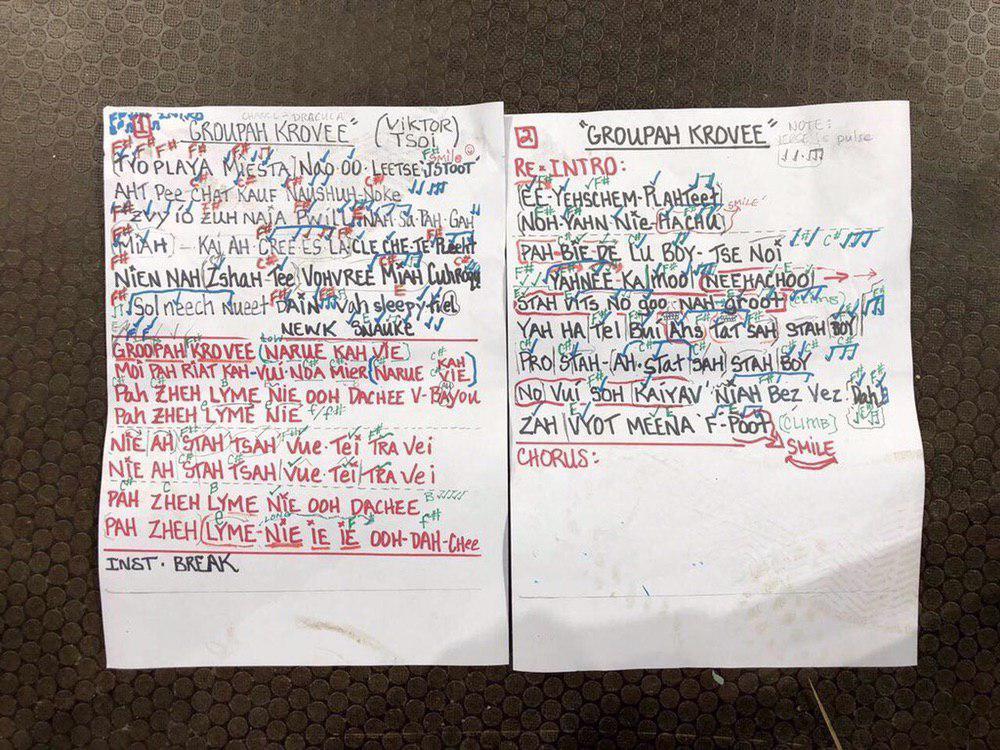 1 "GROUPAH KROVEE" (VIKTOR TSOI)
[TYO PLAYA MIESTA] NAO-OO-LEETSE JSTOOT
AHT PEE CHAT KAUF NAUSHUH NOKE
ZVYIO ZUH NAIA PWILL NAH SU-PAH-GAH
(MIAH) - KAI AH CREE-ES LA CLE CHE-TE PLEEHT
NIEN NAH (ZSHAH-TEE) VOHVREE MIAH CUHROOY
Sol neech NUEET DAIN Vah sleepyfiel
NEWK SNAUKE
GROOPAH KROVEE (NARUE KAH VIE)
MOI PAH RIAT KAH-VUI-NOA MIER (NARUE KAH VIE)
Pah ZHEH LYME NIE OOH DACHEE V-BAYOU
Pah ZHEH LYME NIE f/f#
NIE |AH| STAH TSAH VUE-TEI TRA VEI
NIE AH |STAH TSAH| VUE-TEI |TRA VEI
PAH ZHEH LYME NIE OOH DACHEE
PAH ZHEH (LYME-NIE IE IE OOH-DAH-CHEE
INST. BREAK
2 "GROUPAH KROVEE" NOTE:
pulse
RE-INTRO:
(EE-YEHSCHEM-PLAHTEET
(NOH-YAHN NIE-HACHU) SMILE
PAH-BIE DE LU BOY-TSE NOI
YAHNEE KAIMOO (NEEHACHOO)
STAH VITS NO goo NAH groot (CLIMB)
YAH HA |Tei| BUI |AHS |TAT SAH| STAH BOY
PRO |STAH-(AH-STAT |SAH |STAH BOY
(NO VUI SOH (KAIYAV' NIAH BEZ VEZ. DAH
ZAH |VYOT MEENA 'F-POOT) (CLIMB)
SMILE
CHORUS: